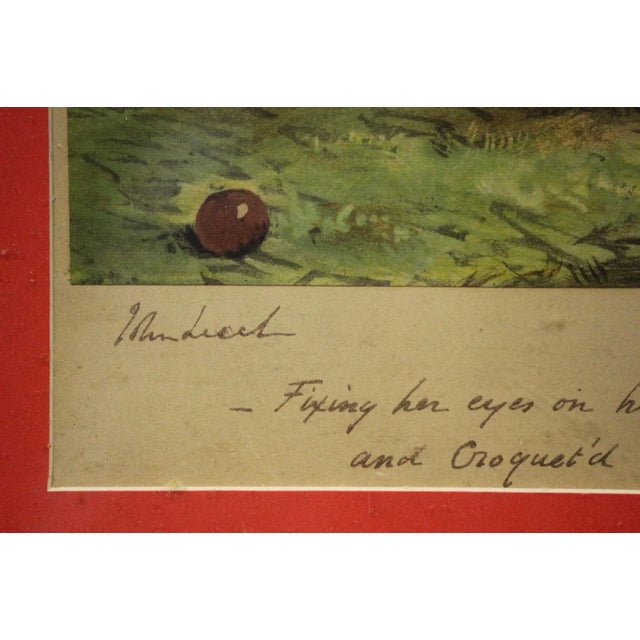 John Leech
– Fixing her eyes on h
and Croquet'd